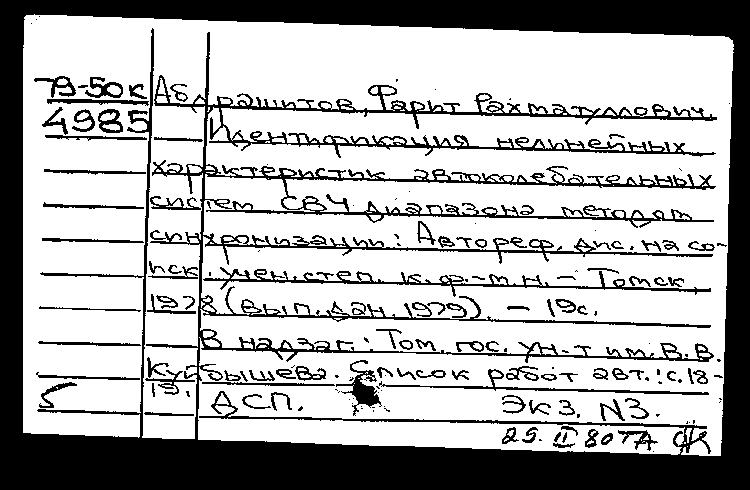 79-50к Абдрашитов, Фарит Рахматуллович.
4985 Идентификация нелинейных
характеристик автоколебательных
систем СВЧ диапазона методом
синхронизации: Автореф. дис. на со-
иск. учен. степ. к. ф.-м. н. - Томск,
1978 (вып. дан. 1979). - 19с.
В надзаг.: Том. гос. ун-т им. В. В.
Куйбышева. Список работ авт.: с. 18-
19.
5 ДСП. Экз. N3.
29. II 80 ТА